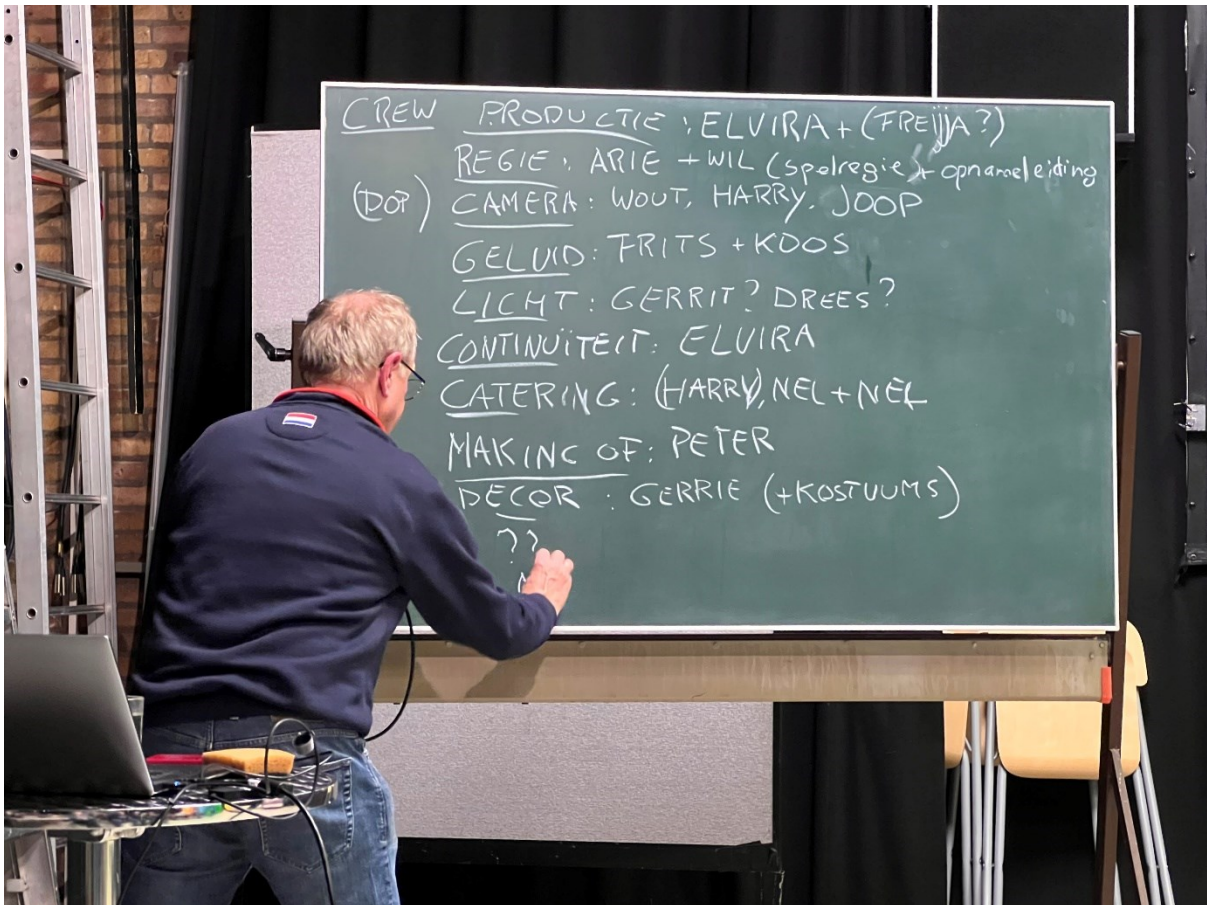 CREW PRODUCTIE : ELVIRA + (FREIJJA?)
REGIE : ARIE + WIL (spelregie) + opnameleiding
(DOP) CAMERA : WOUT, HARRY, JOOP
GELUID : FRITS + KOOS
LICHT : GERRIT? DREES?
CONTINUÏTEIT : ELVIRA
CATERING : (HARRY), NEL + NEL
MAKING OF : PETER
DECOR : GERRIE (+KOSTUUMS)
??